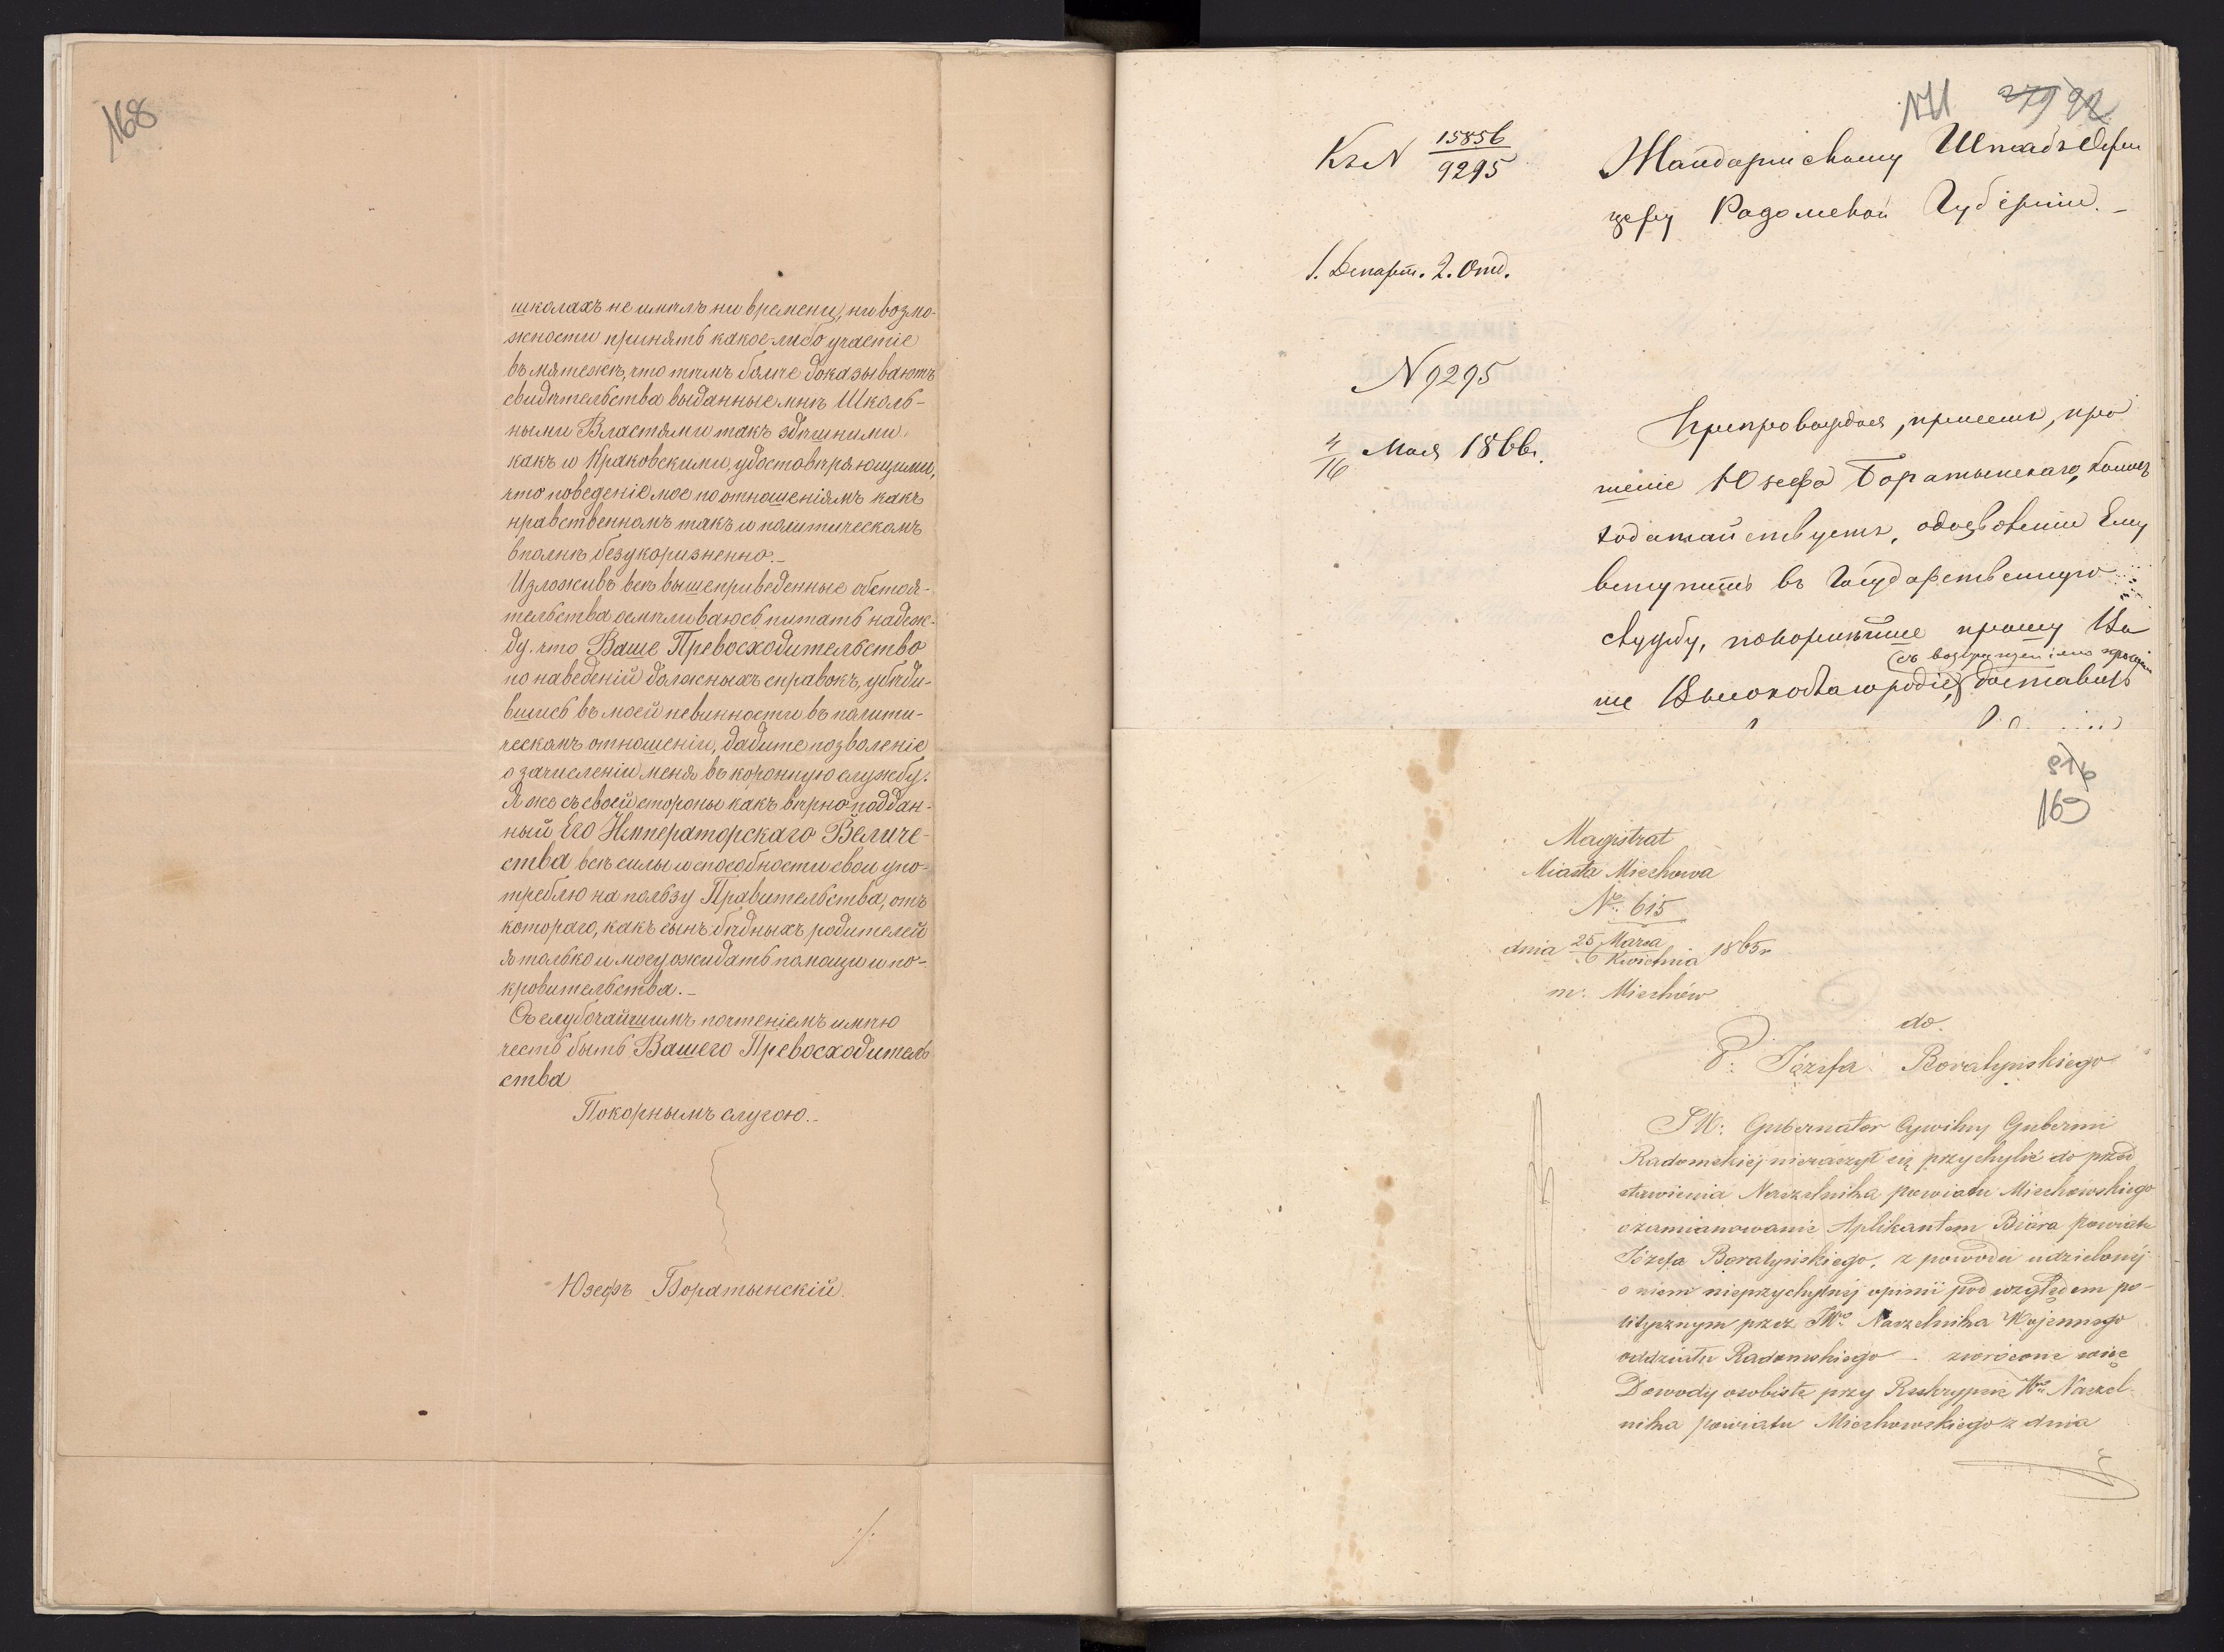 168
школахъ не имѣлъ ни времени, ни возмо-
жности принять какое-либо участіе
въ мятежѣ, что тѣмъ болѣе доказываютъ
свидѣтельства выданные мнѣ Школь-
ными Властями такъ здѣшними
какъ и Краковскими, удостовѣряющими,
что поведеніе мое по отношеніямъ какъ
нравственномъ такъ и политическомъ
вполнѣ безукоризненно.-
Изложивъ всѣ вышеприведенные обстоя-
тельства осмѣливаюсь питать надеж-
ду, что Ваше Превосходительство
по наведеній должныхъ справокъ, убѣди-
вшись въ моей невинности въ полити-
ческомъ отношеніи, дадите позволеніе
о зачисленіи меня въ коронную службу.
Я же съ своей стороны какъ вѣрноподдан-
ный Его Императорскаго Величе-
ства всѣ силы и способности свои упо-
треблю на пользу Правительства, отъ
котораго, какъ сынъ бѣдныхъ родителей
я только и могу ожидать помощи и по-
кровительства.-
Съ глубочайшимъ почтеніемъ имѣю
честь быть Вашего Превосходитель
ства
Покорнымъ слугою.-
Юзефъ Боратынскій.
171 279 92
Къ N 15856
9295
Жандармскому Штабъ Офи
церу Радомской Губерніи.-
1. Департ. 2. Отд.
N 9295
4/16 Мая 1866г.
Препровождая, при семъ, про
шеніе Юзефа Боратынскаго, коимъ
ходатайствуетъ, о дозволеніи Ему
вступить въ Государственную
службу, покорнѣйше прошу Ва
(съ возвращеніемъ
ше Высокоблагородіе, доставить
169
Magistrat
Miasta Miechowa
No 615
dnia 25 Marca / 6 Kwietnia 1865 r
m. Miechów
do
P: Józefa Boratyńskiego
JW: Gubernator Cywilny Gubernii
Radomskiej nieraczył się przychylić do przed
stawienia Naczelnika powiatu Miechowskiego
o zamianowanie Aplikantem Biora powiatu
Józefa Boratyńskiego, z powodu udzielonéj
o niem nieprzychylnéj opinii pod względem po-
litycznym przez JWo Naczelnika Wojennego
oddziału Radomskiego - zwrócone więc
Dowody osobiste przy Reskrypcie Wo Naczel-
nika powiatu Miechowskiego z dnia